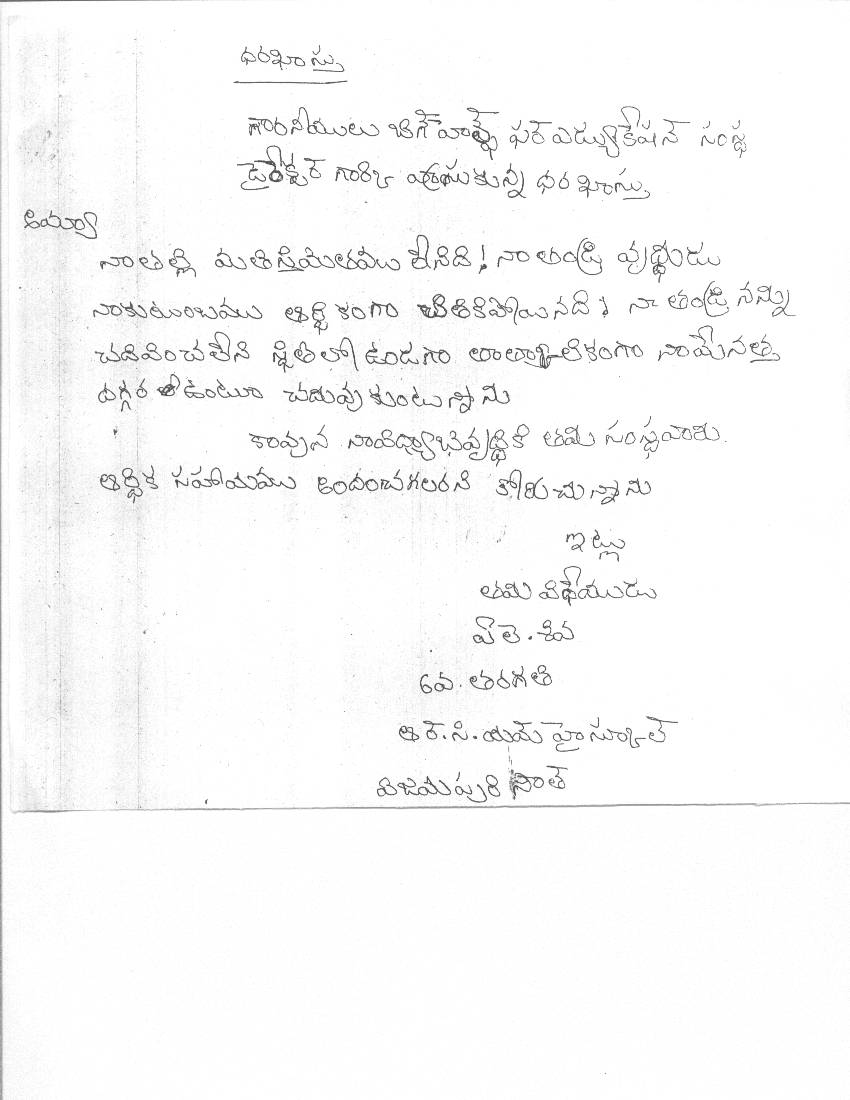 ధరఖాస్తు
గౌరనీయులు బిగ్ హెల్ప్ ఫర్ ఎడ్యుకేషన్ సంస్థ
డైరెక్టర్ గార్కి వ్రాసుకున్న ధరఖాస్తు
అయ్యా
నాతల్లి మతిస్తిమితము లేనిది! నా తండ్రి వృద్ధుడు
నాకుటుంబము ఆర్థికంగా చితికిపోయినది! నా తండ్రి నన్ను
చదివించలేని స్థితిలో ఉండగా తాత్కాలికంగా నామేనత్త
దగ్గర ఉంటూ చదువుకుంటున్నాను
కావున నావిద్యాభివృద్ధికి తమ సంస్థవారు.
ఆర్థిక సహాయము అందించగలరని కోరుచున్నాను
ఇట్లు
తమ విధేయుడు
పి లె. శివ
6వ. తరగతి
ఆర్. సి. యమ్ హైస్కూల్
విజయపురి నార్త్